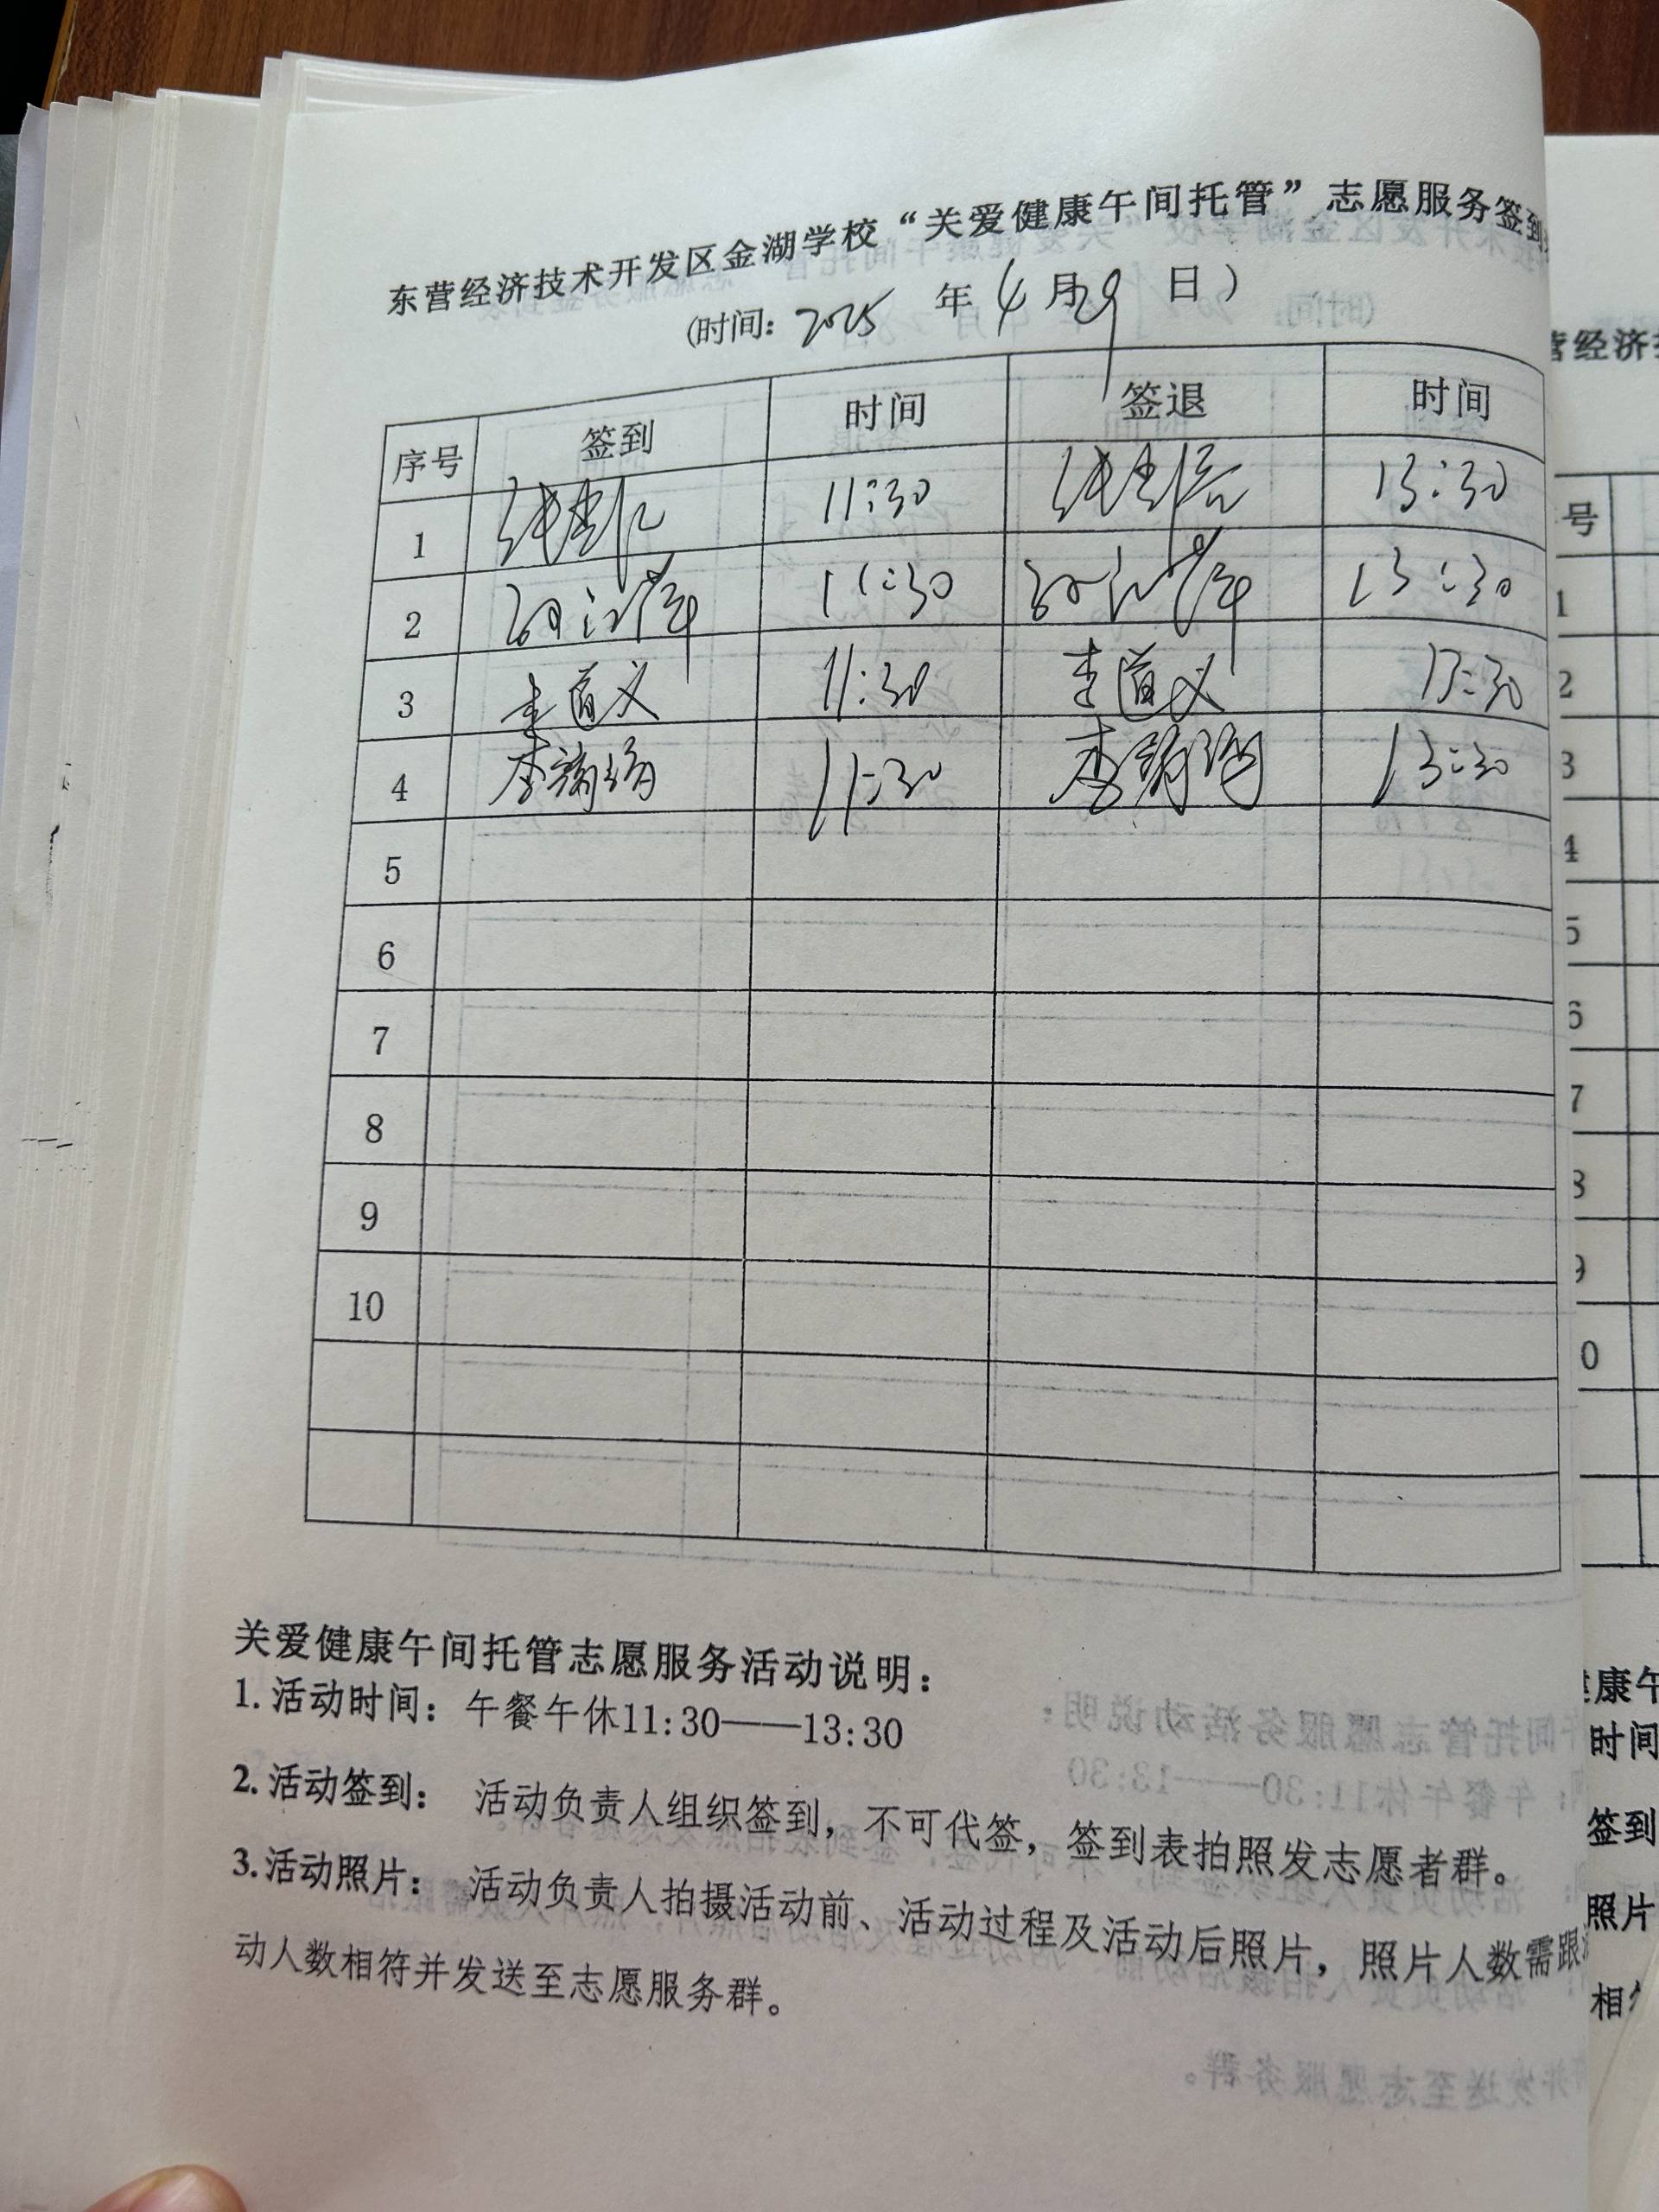 东营经济技术开发区金湖学校“关爱健康午间托管”志愿服务签到
(时间: 2025 年 4 月 29 日)
序号 签到 时间 签退 时间
1 11:30 13:30
2 11:30 13:30
3 李道义 11:30 李道义 13:30
4 李 11:30 李 13:30
5
6
7
8
9
10
关爱健康午间托管志愿服务活动说明:
1.活动时间: 午餐午休11:30——13:30
2.活动签到: 活动负责人组织签到,不可代签,签到表拍照发志愿者群。
3.活动照片: 活动负责人拍摄活动前、活动过程及活动后照片,照片人数需跟
动人数相符并发送至志愿服务群。
营经济
号
1
2
3
4
5
6
7
8
9
0
康午
时间
签到
照片
相